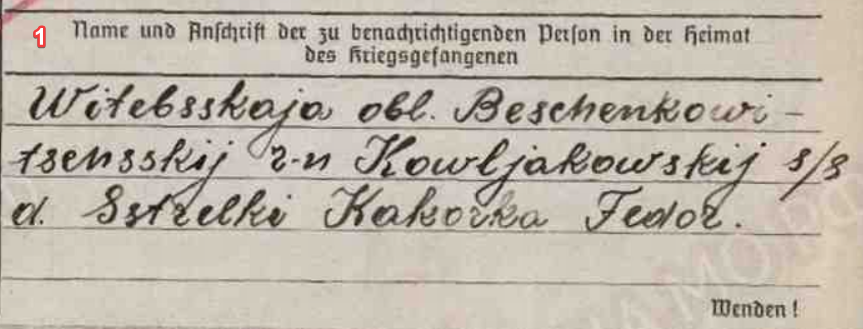 1 Name und Anschrift der zu benachrichtigenden Person in der Heimat
des Kriegsgefangenen
Witebsskaja obl. Beschenkowi-
tsensskij r-n Kowljakowskij s/s
d. Sstrelki Kakorka Fedor.
Wenden!